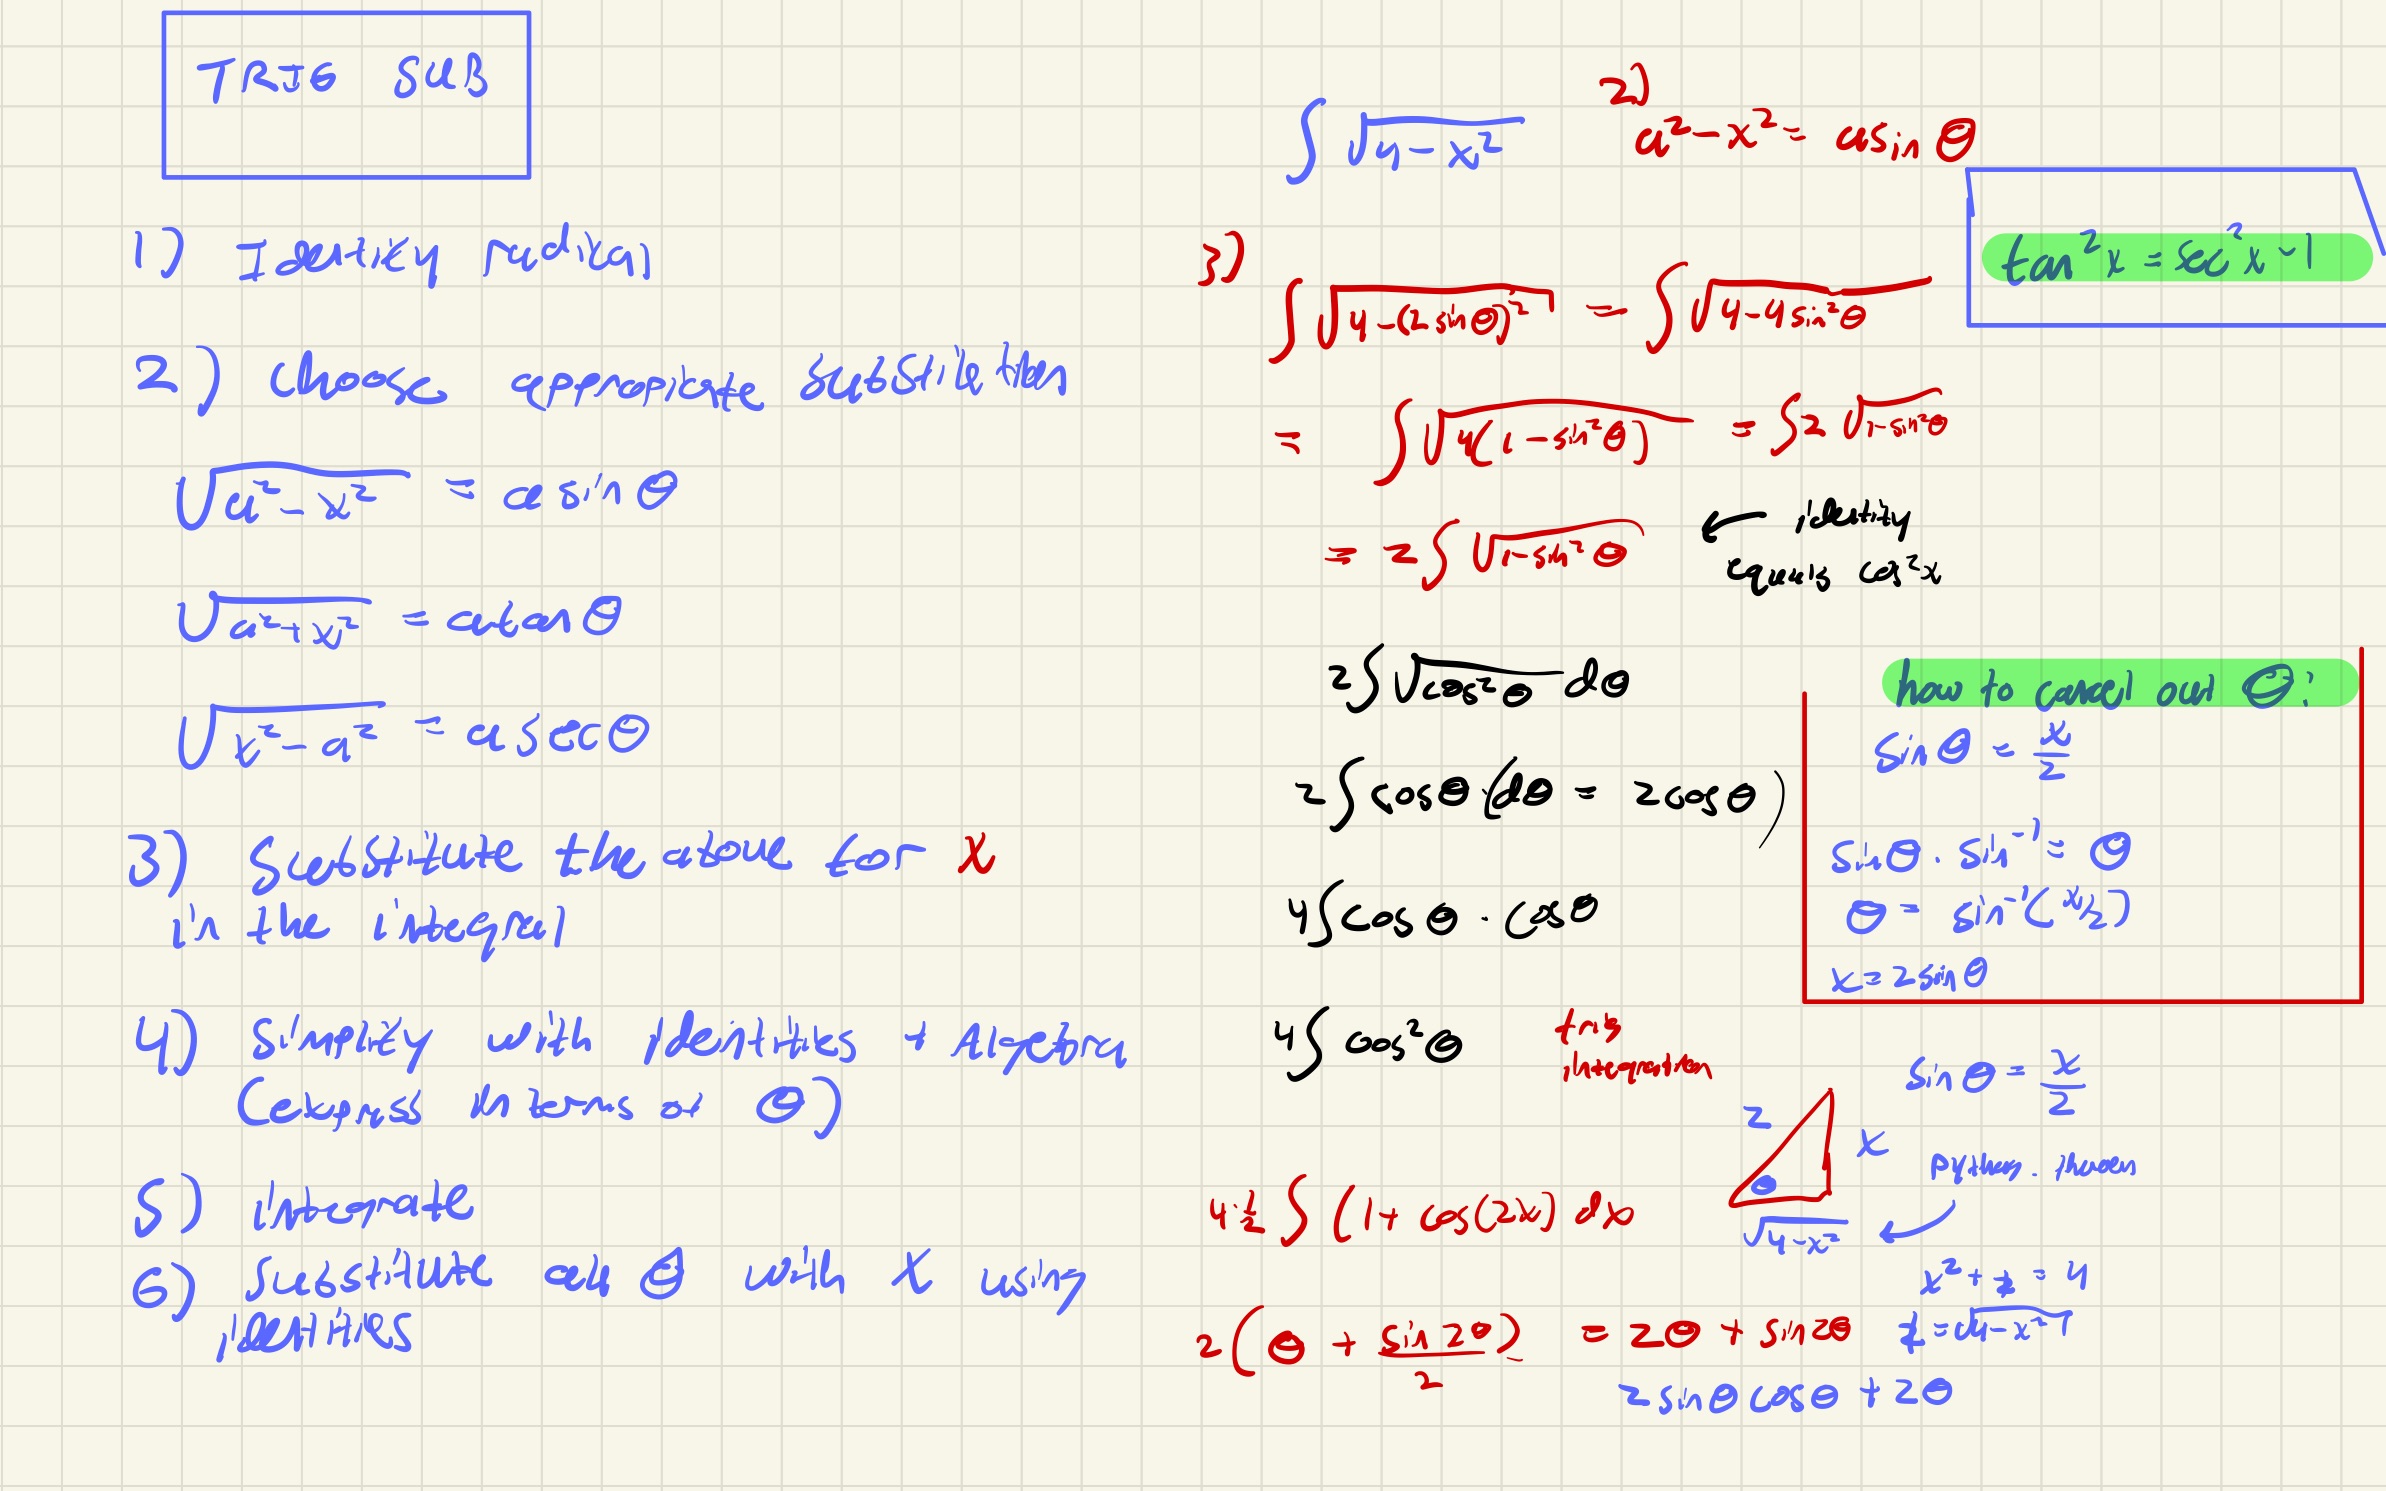 TRIG SUB
1) Identify radical
2) choose appropiate substitution
√(a² - x²) = a sin θ
√(a² + x²) = a tan θ
√(x² - a²) = a sec θ
3) Substitute the above for x
in the integral
4) Simplify with identities + Algebra
(express in terms of θ)
5) integrate
6) Substitute all θ with X using
identities
∫ √(4 - x²)
2)
a² - x² = a sin θ
tan²x = sec²x - 1
3)
∫ √(4 - (2 sin θ)²) = ∫ √(4 - 4 sin²θ)
= ∫ √(4(1 - sin²θ)) = ∫ 2 √(1 - sin²θ)
= 2 ∫ √(1 - sin²θ) ← identity
equals cos²x
2 ∫ √(cos²θ) dθ
2 ∫ cos θ · (dθ = 2 cos θ)
4 ∫ cos θ · cos θ
4 ∫ cos²θ
trig
integration
how to cancel out θ:
sin θ = x/2
sin θ · sin⁻¹ = θ
θ = sin⁻¹(x/2)
x = 2 sin θ
sin θ = x/2
2
x
θ
√(4 - x²)
pythag. theorem
x² + z = 4
z = √(4 - x²)
4·½ ∫ (1 + cos(2x)) dx
2(θ + sin 2θ / 2) = 2θ + sin 2θ
2 sin θ cos θ + 2θ